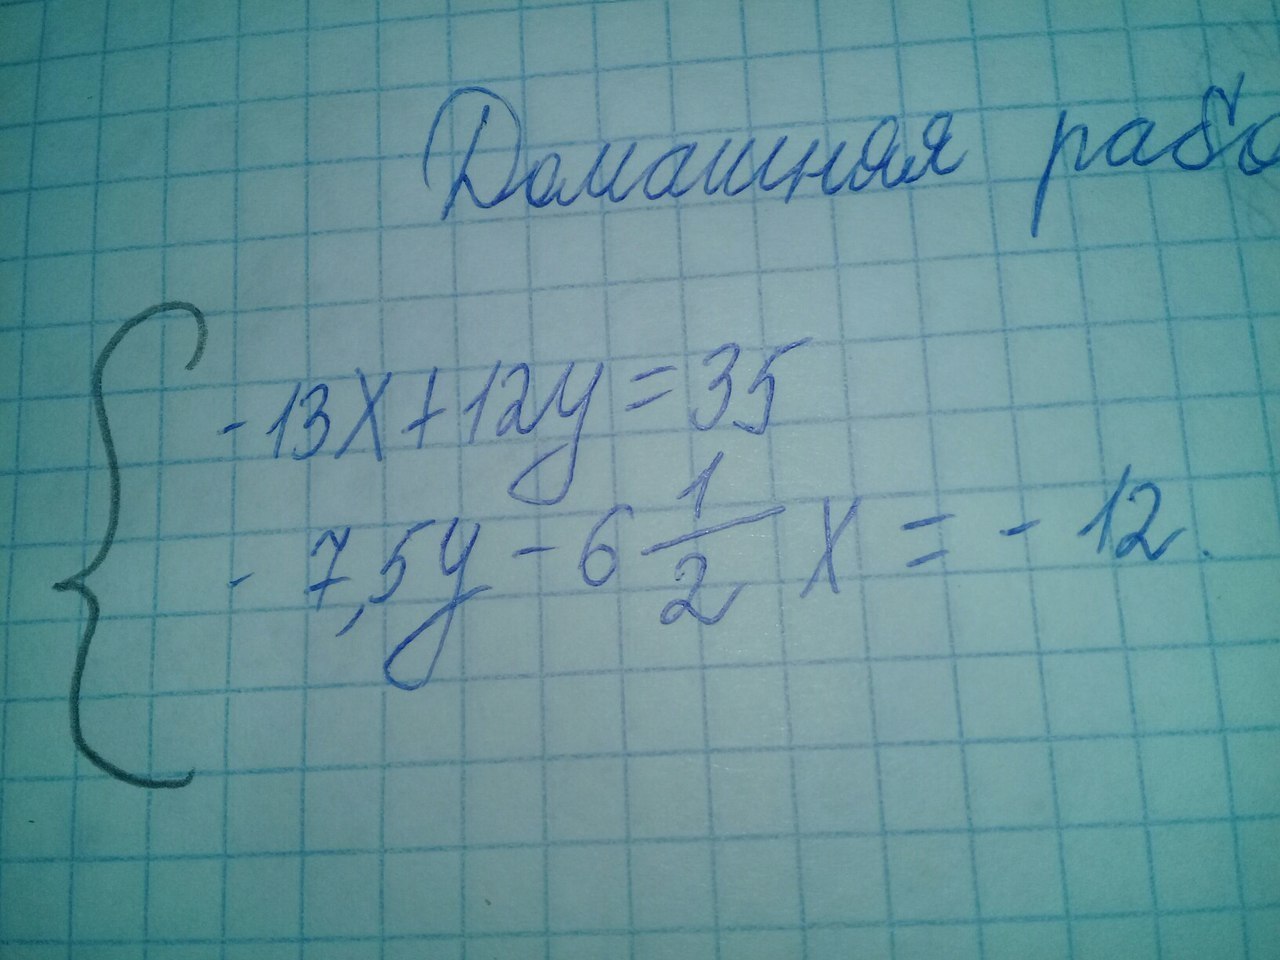 Домашняя рабо
-13x+12y=35
-7,5y-6 1/2 x=-12.